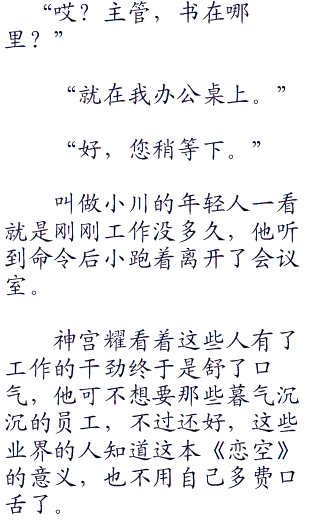 “哎？主管，书在哪
里？”
“就在我办公桌上。”
“好，您稍等下。”
叫做小川的年轻人一看
就是刚刚工作没多久，他听
到命令后小跑着离开了会议
室。
神宫耀看着这些人有了
工作的干劲终于是舒了口
气，他可不想要那些暮气沉
沉的员工，不过还好，这些
业界的人知道这本《恋空》
的意义，也不用自己多费口
舌了。